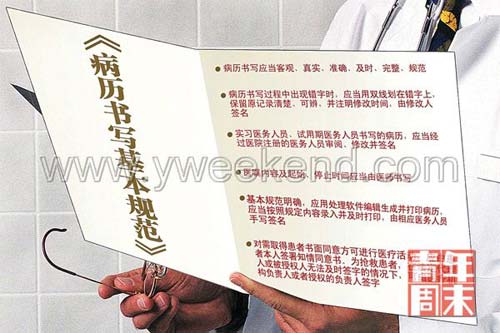 《病历书写基本规范》
● 病历书写应当客观、真实、准确、及时、完整、规范
● 病历书写过程中出现错字时,应当用双线划在错字上,
保留原记录清楚、可辨,并注明修改时间,由修改人
签名
● 实习医务人员、试用期医务人员书写的病历,应当经
过医院注册的医务人员审阅、修改并签名
● 医嘱内容及起始、停止时间应当由医师书写
● 基本规范明确,应用处理软件编辑生成并打印病历,
应当按照规定内容录入并及时打印,由相应医务人员
手写签名
● 对需取得患者书面同意方可进行医疗活
者本人签署知情同意书。为抢救患者,
人或被授权人无法及时签字的情况下,
构负责人或者授权的负责人签字
www.yweekend.com
青年
周末